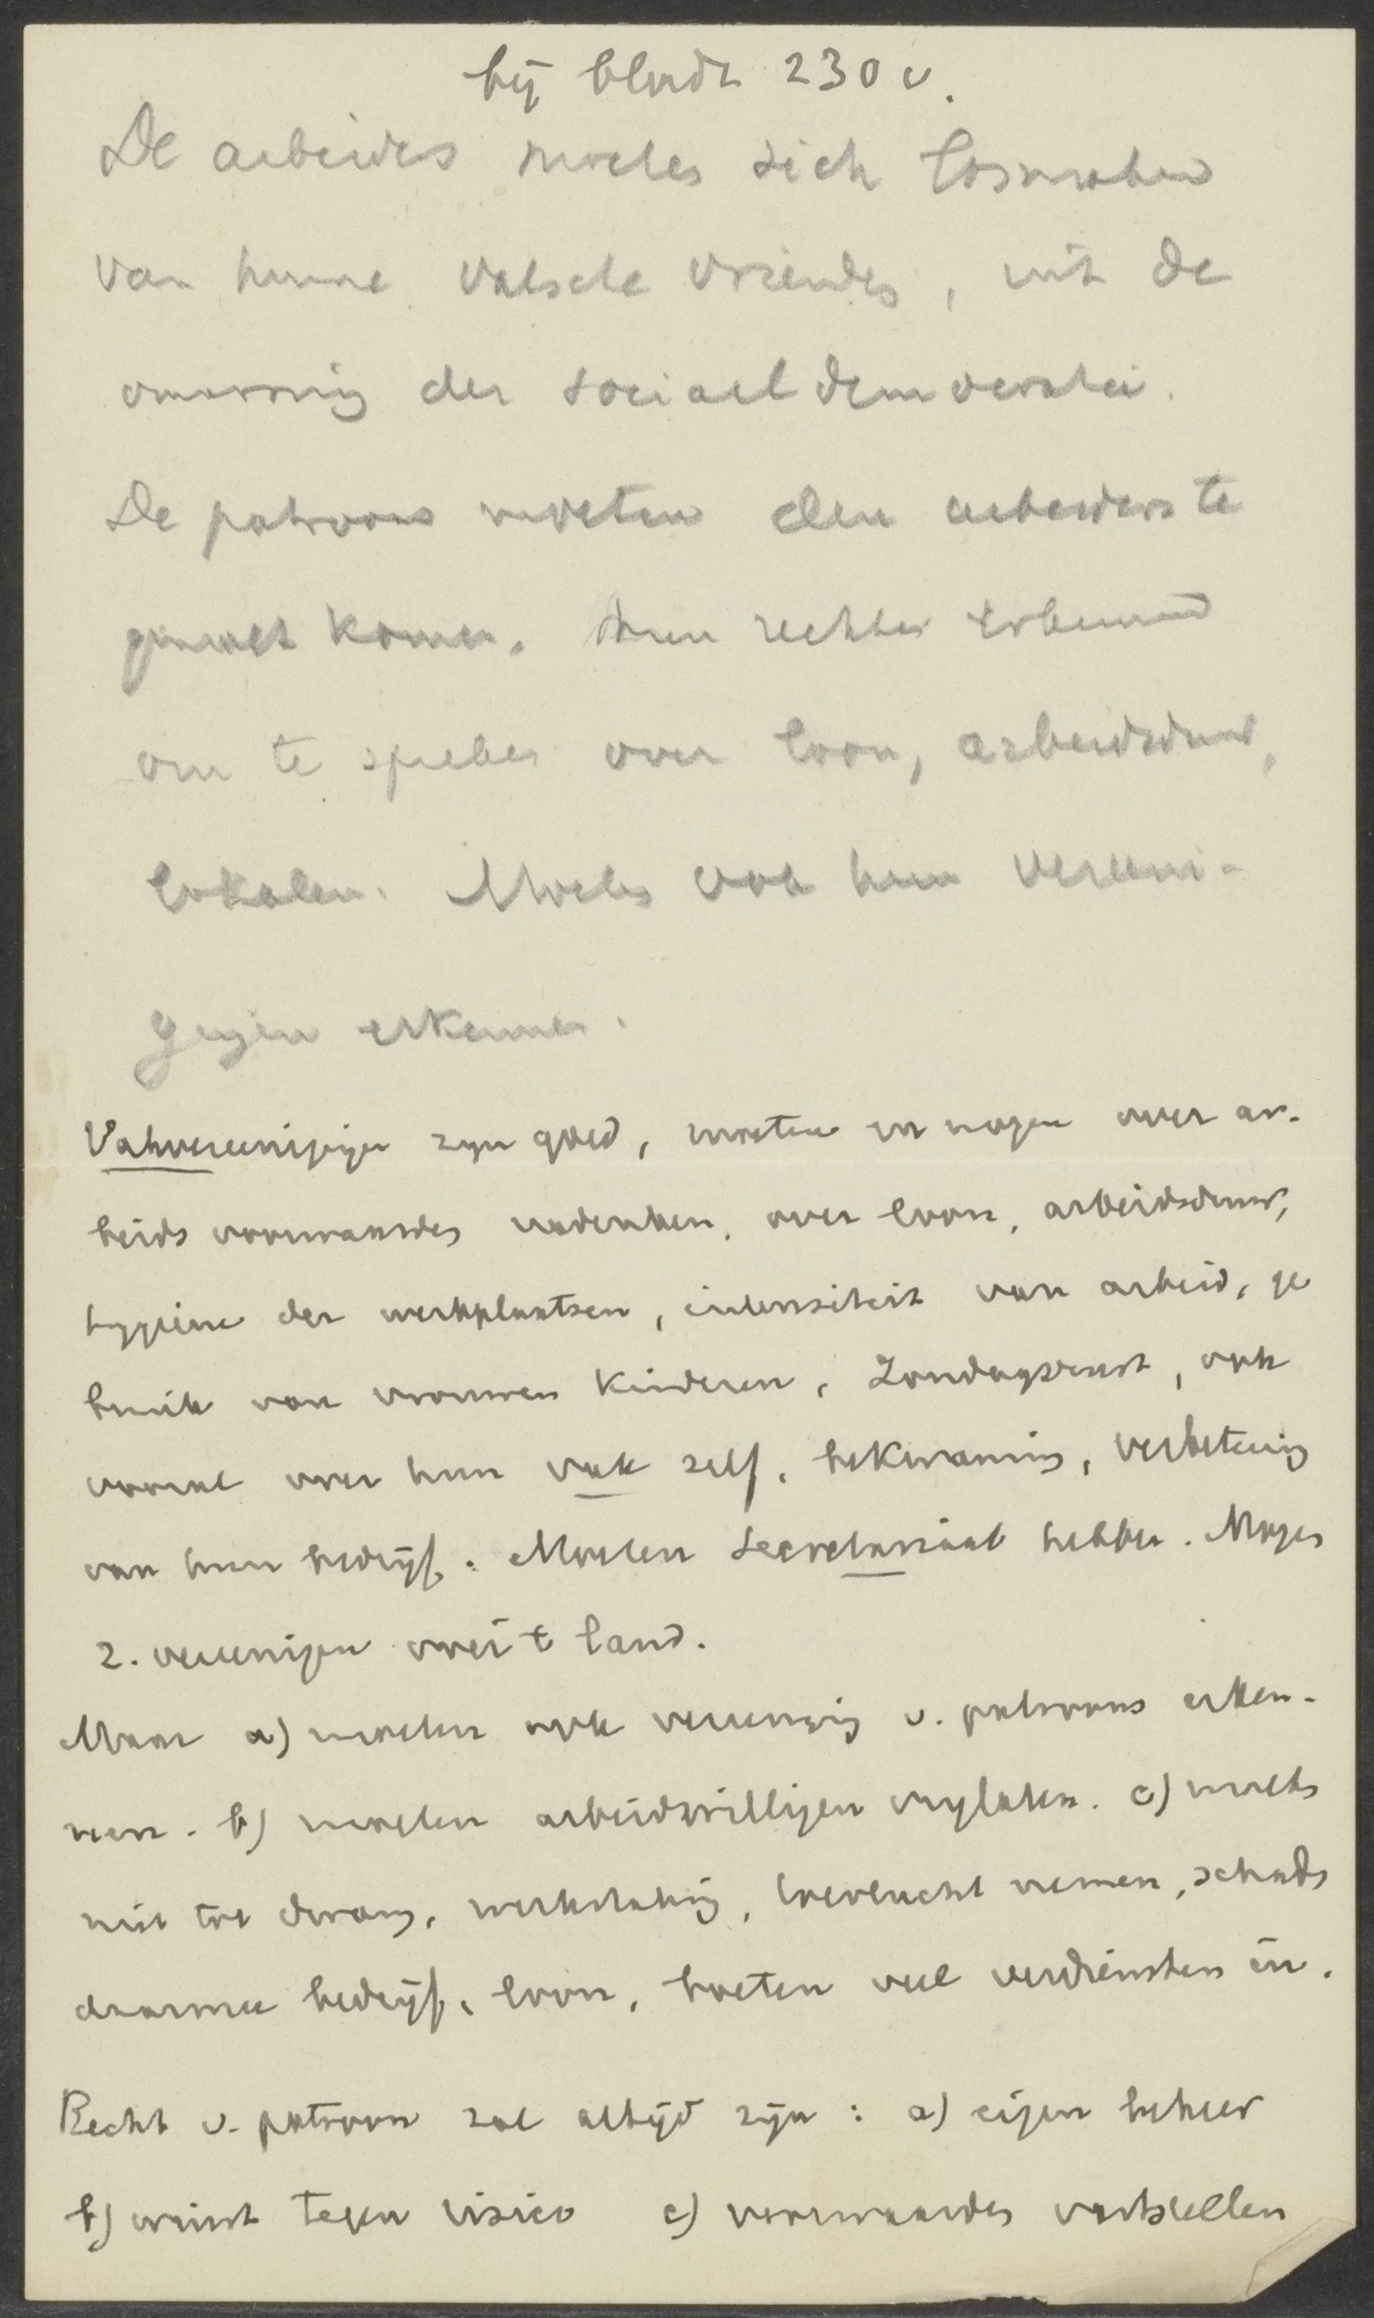 bij bladz 230 v.
De arbeiders moeten zich losmaken
van hunne valsche vrienden, uit de
omarming der sociaal democratie.
De patroons moeten den arbeiders te
gemoet komen. Hun rechten erkennend
om te spreken over loon, arbeidsduur,
lokalen. Moeten ook hun vereeni-
gingen erkennen.
Vakvereenigingen zijn goed, moeten en mogen over ar-
beids voorwaarden nadenken, over loon, arbeidsduur,
hygiene der werkplaatsen, intensiteit van arbeid, ge
bruik van vrouwen kinderen, Zondagsrust, ook
vooral over hun vak zelf, bekwaming, verbetering
van hun bedrijf. Moeten secretariaat hebben. Mogen
z. vereenigen over 't land.
Maar a) moeten ook vereenigig v. patroons erken-
nen. b) moeten arbeidswilligen vrylaten. c) moeten
niet tot dwang, werkstaking, toevlucht nemen, schaden
daarmee bedrijf, loon, boeten veel verdiensten in.
Recht v. patroon zal altijd zijn : a) eigen beheer
b) winst tegen risico c) voorwaarden vaststellen